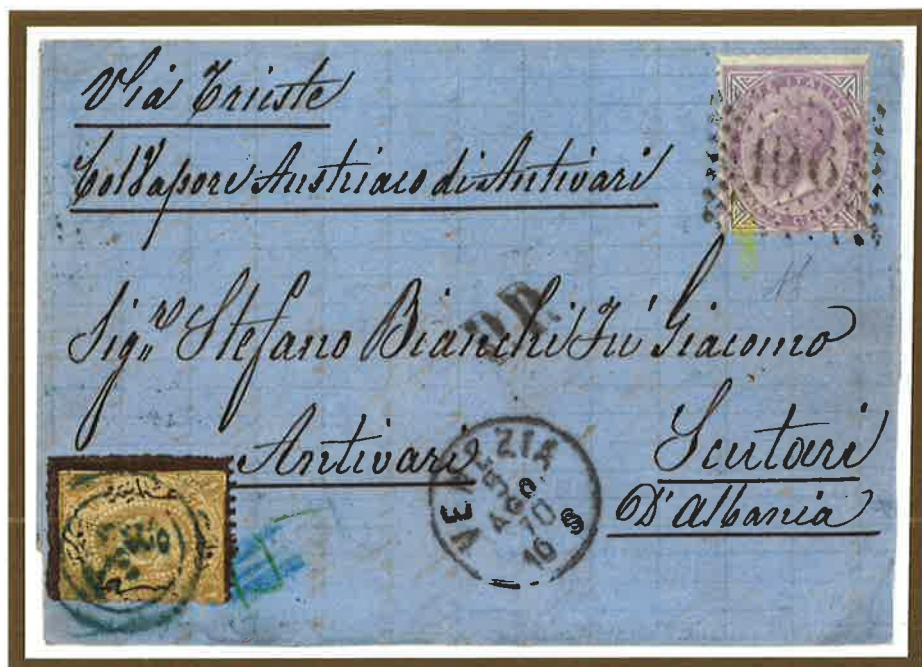 Via Trieste
Col Vapore Austriaco di Antivari
196
P.D.
Sigʳ Stefano Bianchi fu' Giacomo
Antivari
Scutari
D'Albania
VENEZIA
5
AGO
70